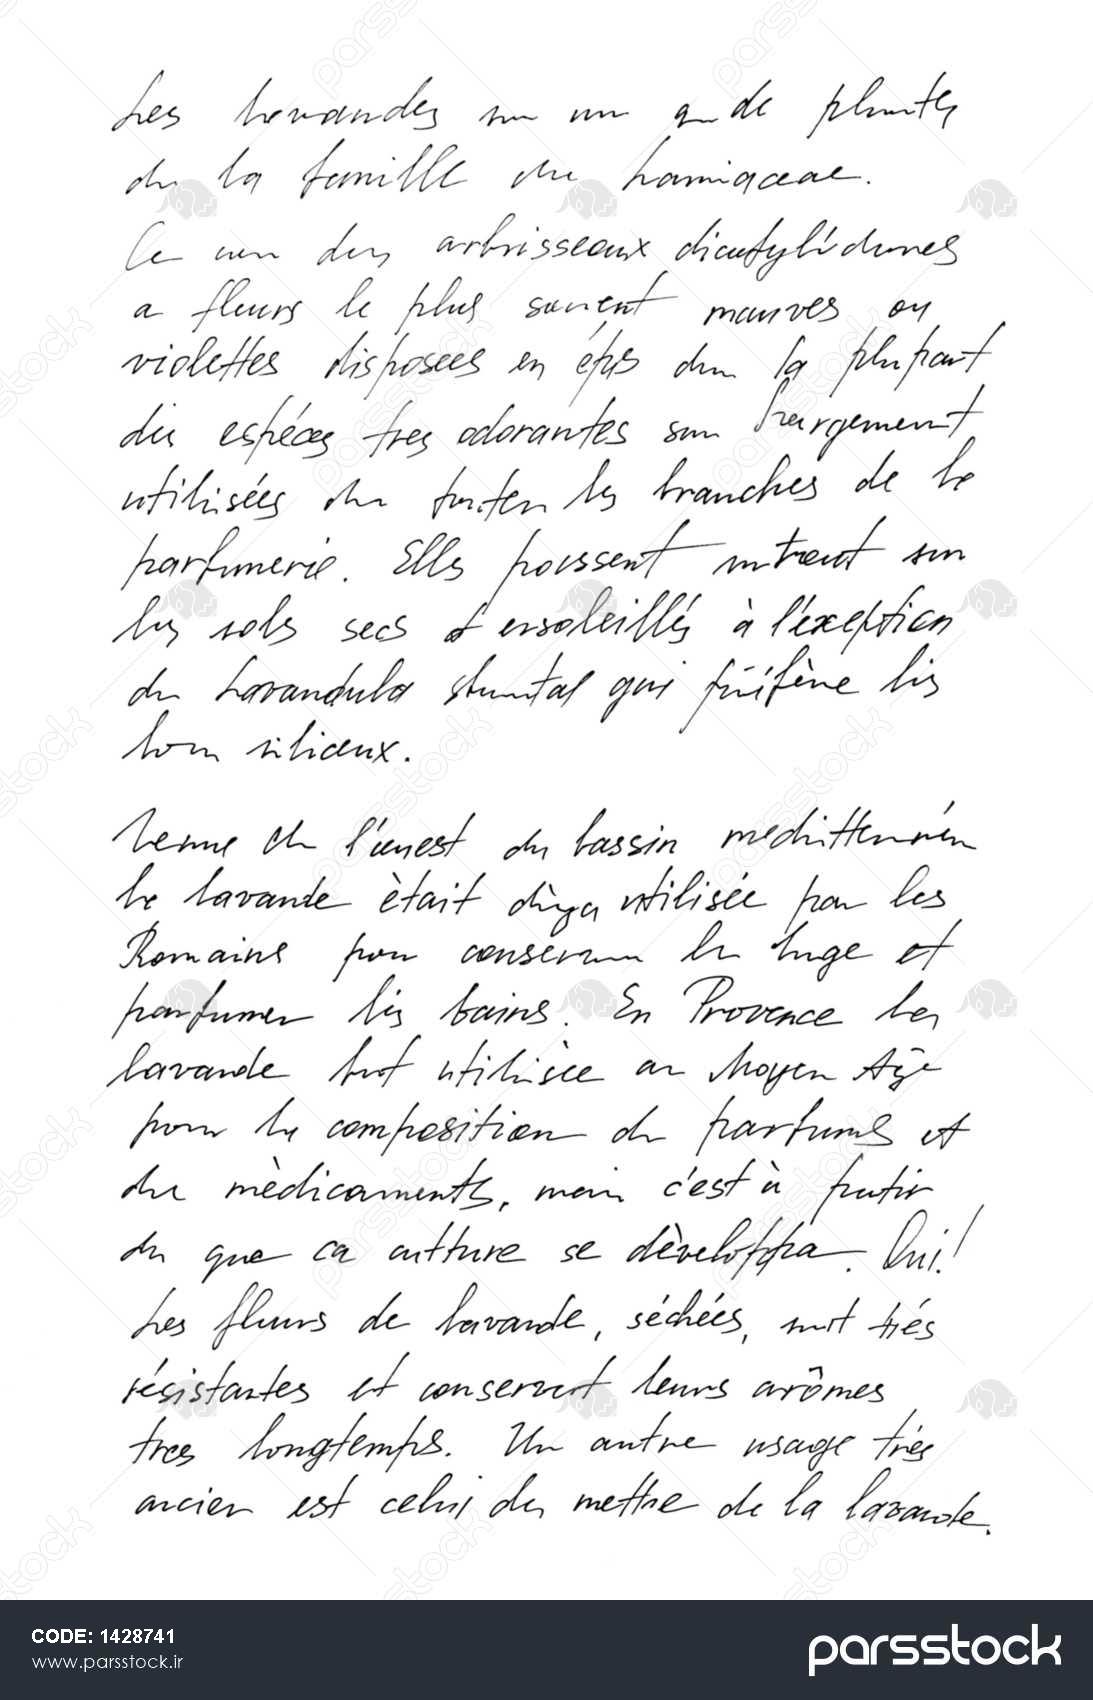 Les lavandes de plantes
de la famille du Lamiaceae.
Ce des arbrisseaux dicotylédones
a fleurs le plus souvent mauves ou
violettes disposees en épis la plupart
des espéces tres odorantes son largement
utilisées les branches de la
parfumerie. Elles poussent sur
les sols secs et ensoleillés à l'éxception
de Lavandula qui préfère les
siliceux.
de l'ouest du bassin
la lavande ètait utilisée par les
Romains pour conserver le linge et
parfumer les bains. En Provence la
lavande fut utilisèe au Moyen Age
pour la composition de parfums et
de mèdicaments, mais c'est à partir
du que ca culture se dèveloppa. Oui!
Les fleurs de lavande, séchées, sont trés
résistantes et conservent leurs arômes
tres longtemps. Un autre usage trés
ancien est celui de mettre de la lavande.
CODE: 1428741
www.parsstock.ir
parsstock